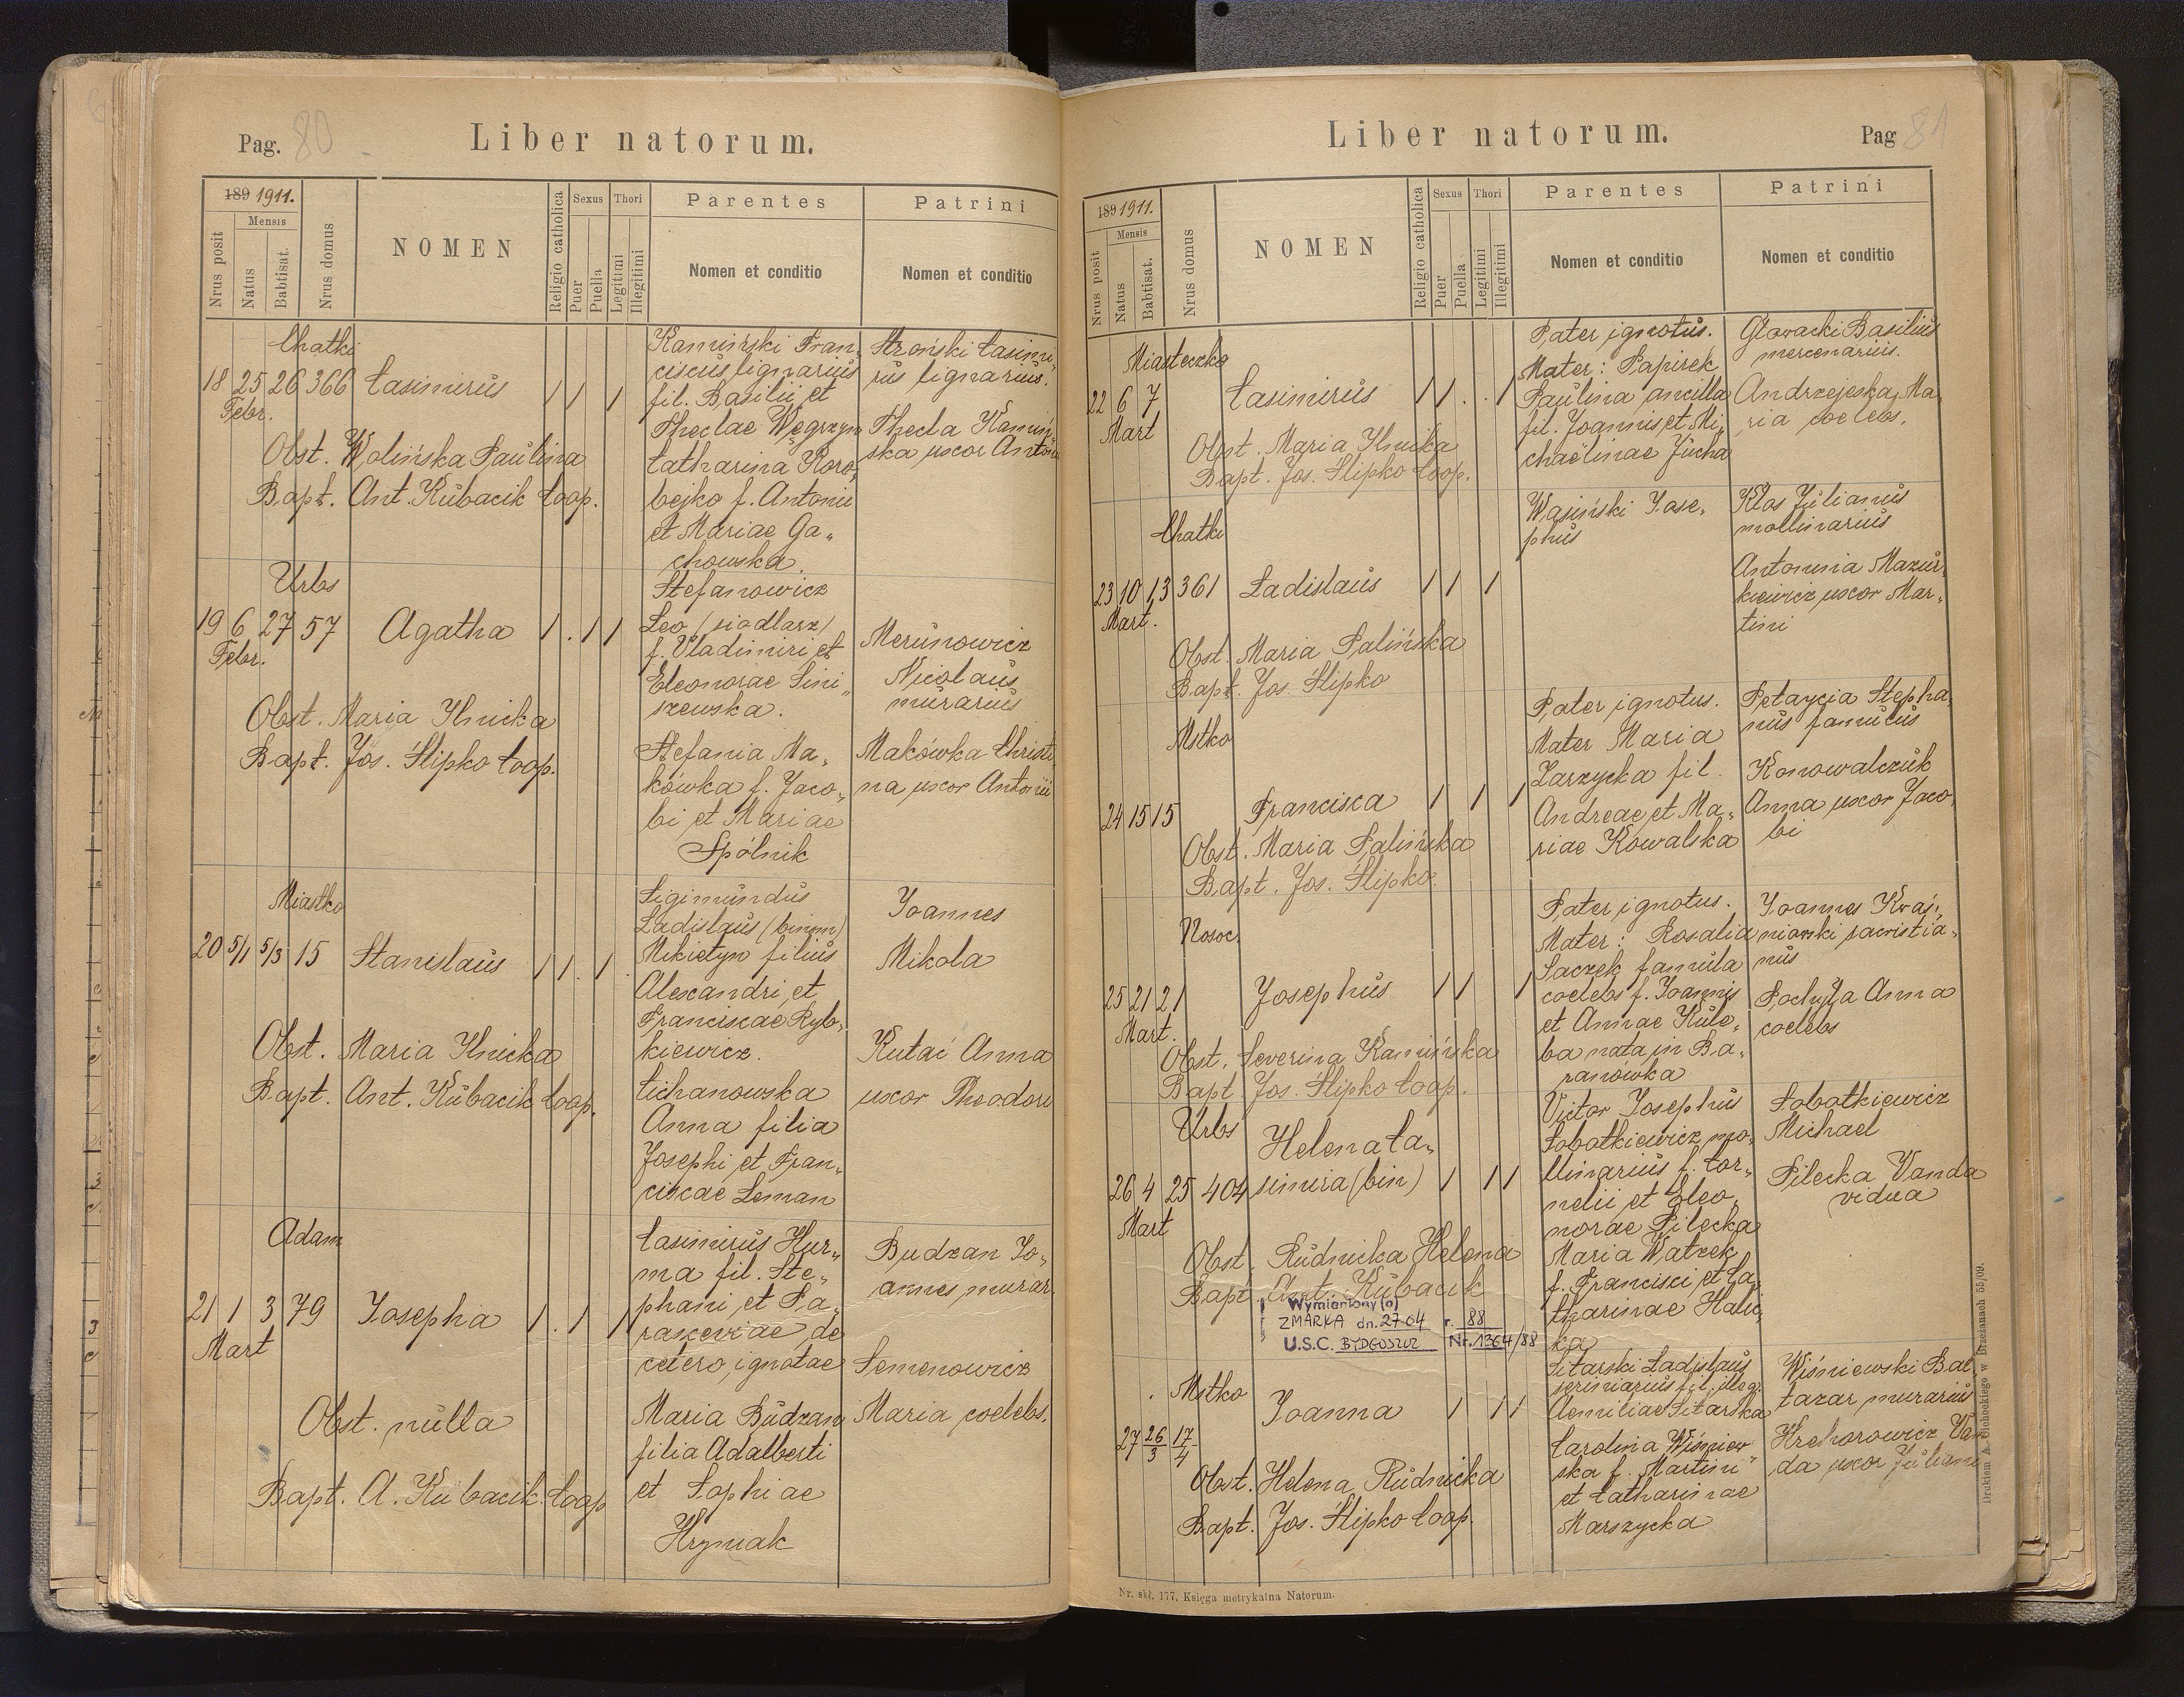 Pag. 80
Liber natorum.
189 1911.
Nrus posit
Mensis
Natus
Babtisat.
Nrus domus
NOMEN
Religio catholica
Sexus
Puer
Puella
Thori
Legitimi
Illegitimi
Parentes
Nomen et conditio
Patrini
Nomen et conditio
Chatki
18 25 26 366 Casimirus 1 1 1
Febr.
Obst. Wolińska Paulina
Bapt. Ant. Kubacik Coop.
Kamiński Fran„
ciscus lignarius
fil. Basilii et
Theclae Węgrzyn
Catharina Koro„
bejko f. Antonii
et Mariae Ga„
chowska.
Stroński Casimi„
rus lignarius.
Thecla Kamiń„
ska uxor Antonii
Urbs
19 6 27 57 Agatha 1 . 1 1
Febr.
Obst. Maria Ilnicka
Bapt. Jos. Ślipko Coop.
Stefanowicz
Leo (siodlarz)
f. Vladimiri et
Eleonorae Sini„
szewska.
Stefania Ma„
kówka f. Jaco„
bi et Mariae
Spólnik
Merunowicz
Nicolaus
murarius
Makówka Christi„
na uxor Antonii
Miastko
20 5/1 5/3 15 Stanislaus 1 1 . 1 .
Obst. Maria Ilnicka
Bapt. Ant. Kubacik Coop.
Sigimundus
Ladislaus (binom)
Mikietyn filius
Alexandri et
Franciscae Ryb„
kiewicz.
Cichanowska
Anna filia
Josephi et Fran„
ciscae Leman
Joannes
Mikola
Kutać Anna
uxor Theodori
Adam
21 1 3 79 Josepha 1 . 1 1
Mart
Obst. nulla
Bapt. A. Kubacik Coop
Casimirus Hur„
ma fil. Ste„
phani et Pa„
raskeviae de
cetero ignotae
Maria Budzan
filia Adalberti
et Sophiae
Hryniak
Budzan Jo„
annes murar.
Semenowicz
Maria coelebs.
Liber natorum.
Pag 81
189 1911.
Nrus posit
Mensis
Natus
Babtisat.
Nrus domus
NOMEN
Religio catholica
Sexus
Puer
Puella
Thori
Legitimi
Illegitimi
Parentes
Nomen et conditio
Patrini
Nomen et conditio
Miasteczko
22 6 7 Casimirus 1 1 . . 1
Mart
Obst. Maria Ilnicka
Bapt. Jos. Ślipko Coop.
Pater ignotus.
Mater: Papirek
Paulina ancilla
fil. Joannis et Mi„
chaëlinae Jucha
Głowacki Basilius
mercenarius.
Andrzejeska Ma„
ria coelebs.
Chatki
23 10 13 361 Ladislaus 1 1 1
Mart.
Obst. Maria Palińska
Bapt. Jos. Ślipko
Wasiński Jose„
phus
Klos Julianus
mollinarius
Antonina Mazur„
kiewicz uxor Mar„
tini
Mstko
24 15 15 Francisca 1 1 1
Obst. Maria Palińska
Bapt. Jos. Ślipko.
Pater ignotus.
Mater Maria
Zarzycka fil.
Andreae et Ma„
riae Kowalska
Petrycia Stepha„
nus famulus
Konowalczuk
Anna uxor Jaco„
bi
Nosoc.
25 21 21 Josephus 1 1 1
Mart.
Obst. Severina Kamińska
Bapt. Jos. Ślipko Coop.
Pater ignotus.
Mater: Rosalia
Saczek famula
coelebs f. Joannis
et Annae Kule„
ba nata in Ba„
ranówka
Joannes Kraś„
niawski sacristia„
nus
Pochyła Anna
coelebs
Urbs
Helena Ca„
26 4 25 404 simira (bin) 1 1 1
Mart
Obst. Rudnicka Helena
Bapt. Ant. Kubacik
Wymieniony (a)
ZMARŁA dn. 27 04 r. 88
U.S.C. BYDGOSZCZ Nr. 1364/88
Victor Josephus
Sobotkiewicz mo„
llinarius f. Cor„
nelii et Eleo„
norae Pilecka
Maria Watzek
f. Francisci et Ca„
tharinae Halic„
ka
Sobotkiewicz
Michael
Pilecka Vanda
vidua
Mstko
27 26/3 17/4 Joanna 1 1 1
Obst. Helena Rudnicka
Bapt. Jos. Ślipko Coop.
Sitarski Ladislaus
scriniarius fil. illeg.
Aemiliae Sitarska
Carolina Wiśniew„
ska f. Martini
et Catharinae
Marszycka
Wiśniewski Bal„
tazar murarius
Hrehorowicz Van„
da uxor Juliani
Nr. skł. 177. Księga metrykalna Natorum.
Drukiem A. Cichockiego w Brzeżanach 55/09.